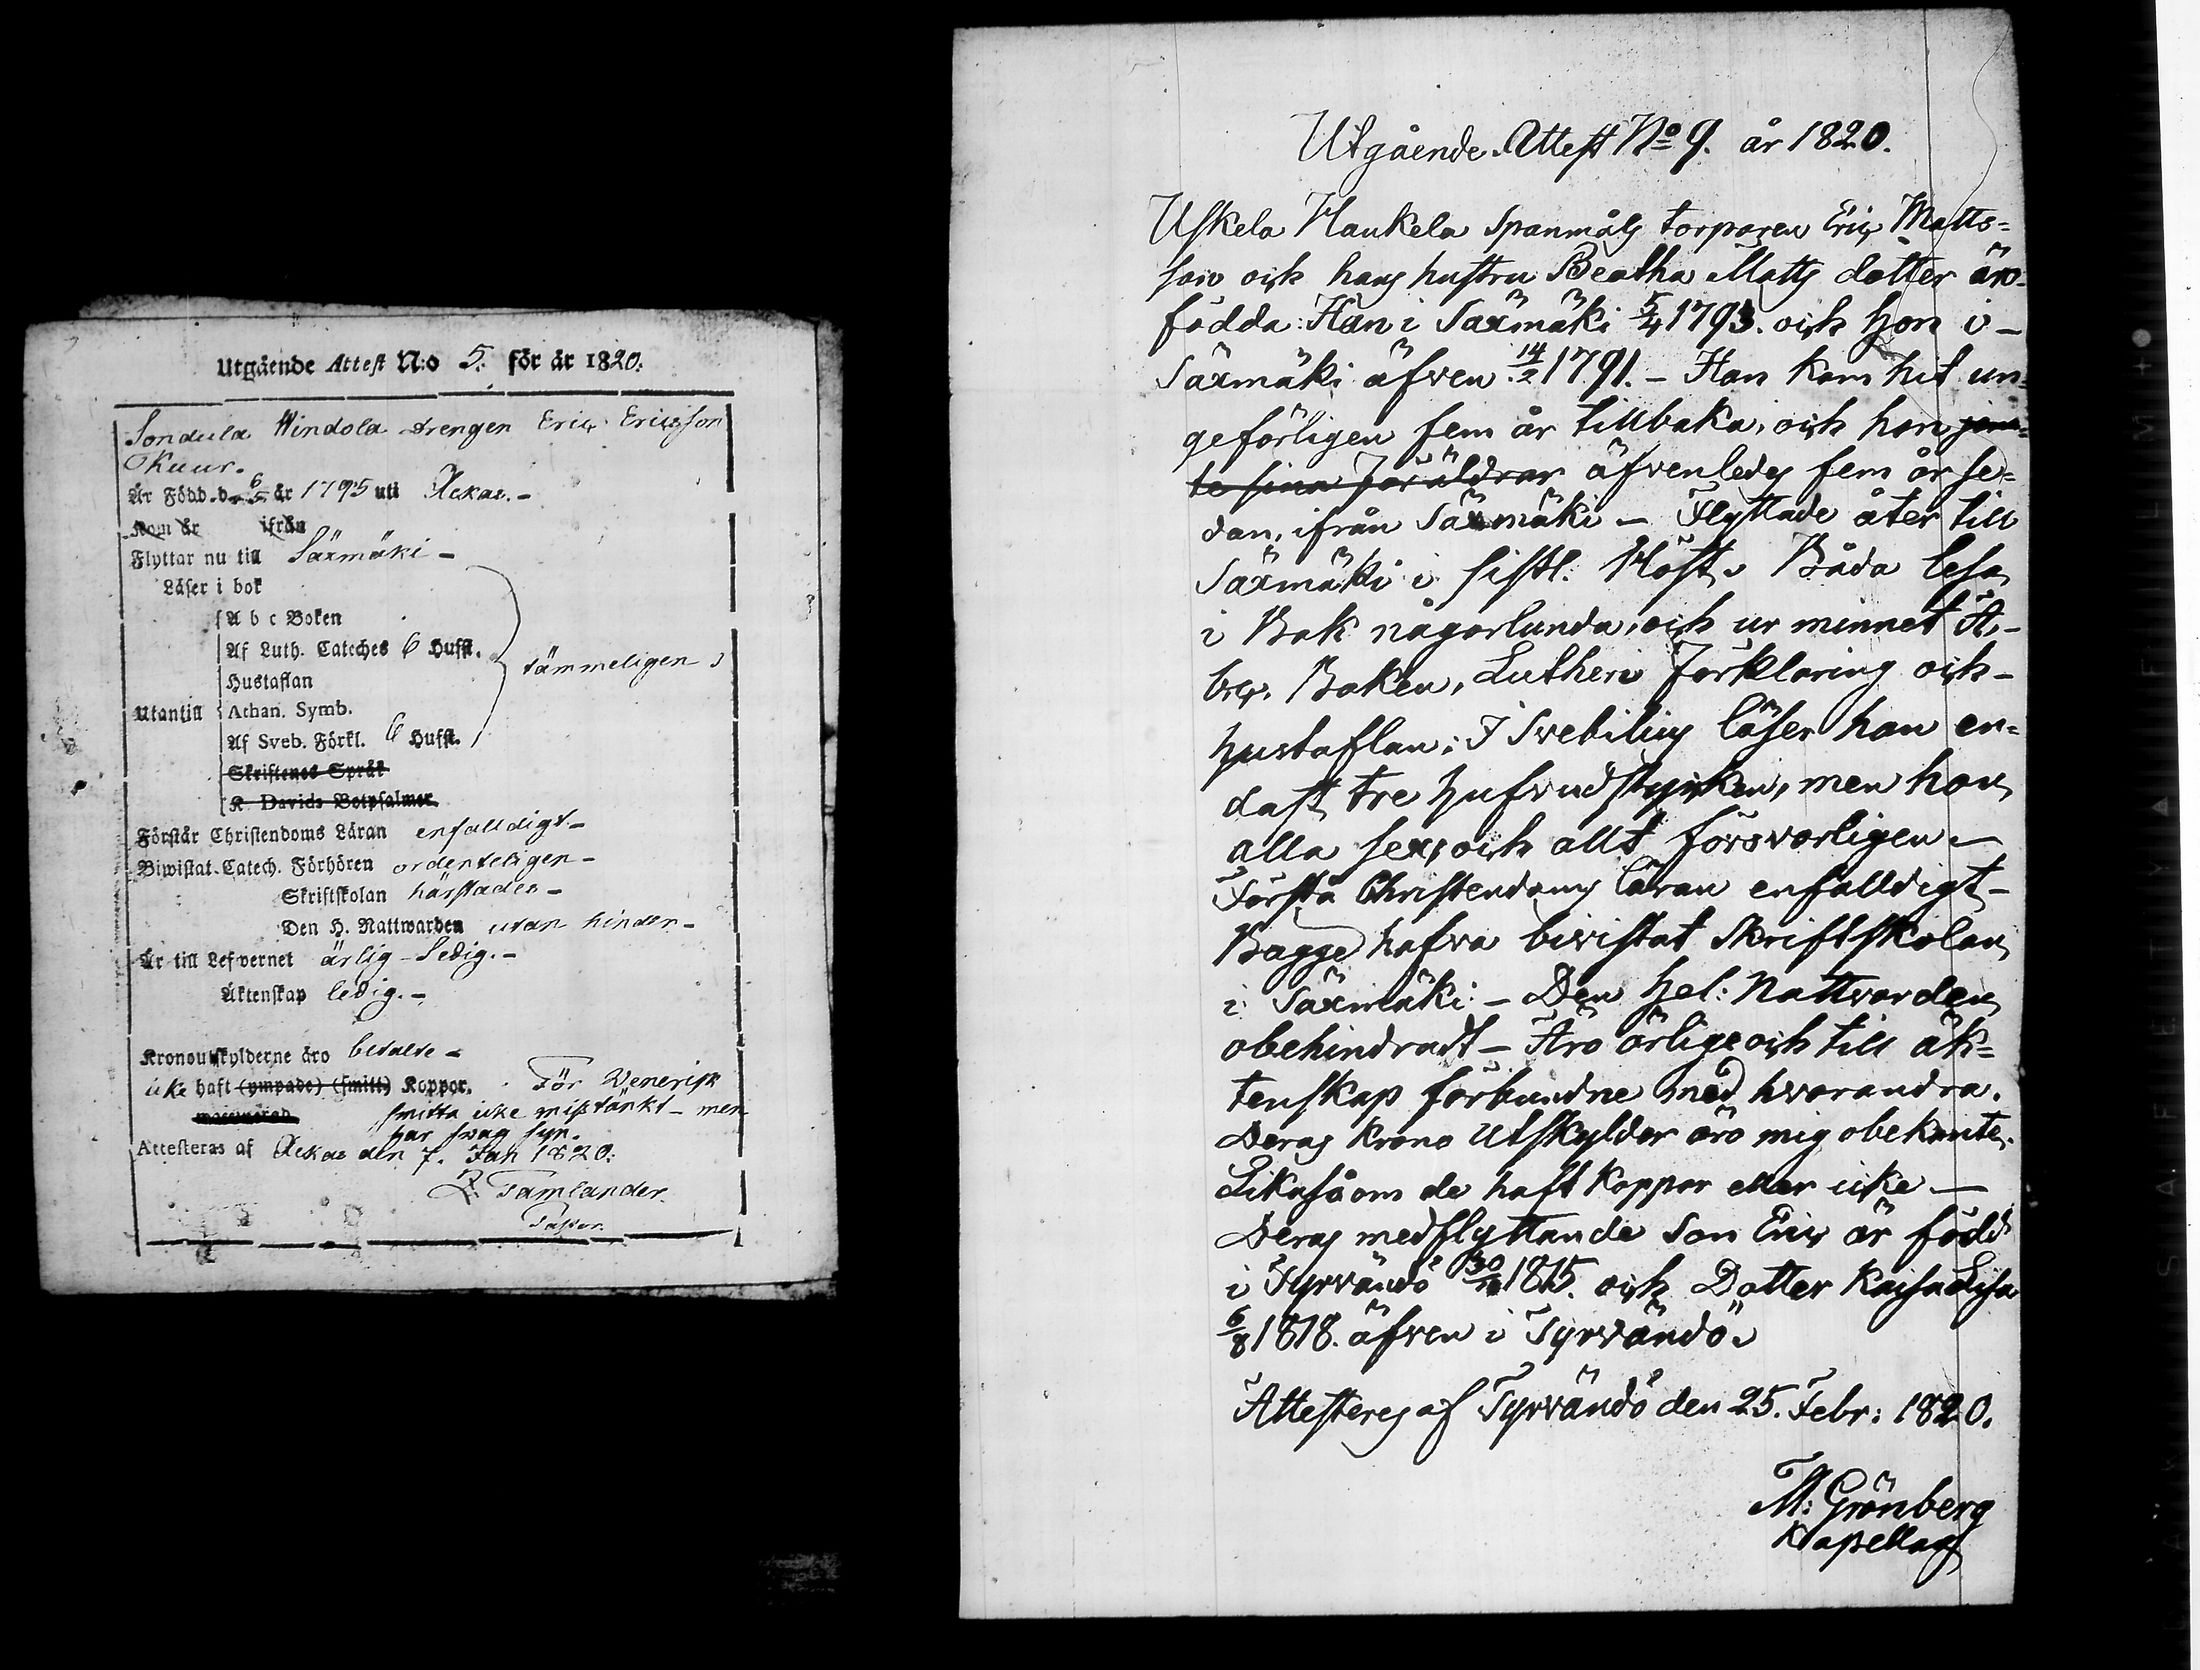 Utgående Attest N:o 5. för år 1820.
Sondula Windola drengen Eric Ericsson
Kuur.
Är Född. d. 6/5 år 1795 uti Ackas. -
Kom år ifrån
Flyttar nu till Säxmäki -
Läser i bok
A b c Boken
Af Luth. Catches 6 Hufst.
Hustaflan
tämmeligen
Utantill
Athan. Symb.
Af Sveb. Förkl. 6 Hufst.
Skriftenes Språk
K. Davids Botpsalmer
Förstår Christendoms Läran enfalldigt -
Biwistat Catech. Förhören ordenteligen -
Skriftskolan härstädes -
Den H. Nattwarden utan hinder -
Är till Lefvernet ärlig - Ledig. -
Äktenskap ledig. -
Kronoutskylderne äro betalte -
icke haft (ympade) (smitt) Koppor. För Venerisk
smitta icke misstänkt - men
har svag syn.
Attesteras af Ackas den 7. Jan 1820:
Tamlander
Pastor.
Utgående Attest No 9. år 1820.
Uskela Haukela Spanmåls torparen Eric Matts=
son och hans hustru Beatha Matts dotter äro
födda: Han i Saxmäki 5/4 1793. och hon i -
Säxmäki äfven 14/2 1791. - Han kom hit un=
geförligen fem år tillbaka, och hon jem=
te sina föräldrar äfvenledes fem år se=
dan, ifrån Säxmäki - Flyttade åter till
Säxmäki i sistl. Höst. Båda läsa
i Bok någorlunda, och ur minnet A,-
bec. Boken, Lutheri Förklaring och -
hustaflan; I Svebilius läser han en=
dast tre hufvudstycken, men hon
alla sex, och allt försvarligen -
Förstå Christendoms läran enfalldigt -
Bagge hafva bivistat Skriftskolan
i Säxmäki - Den Hel: Nattvarden
obehindradt - Äro ärlige och till äk=
tenskap förbundne med hvarandra.
Deras Krono Utskylder äro mig obekante.
Likaså om de haft koppor eller icke -
Deras medflyttande Son Eric är född
i Tyrvändö 30/ 1815. och Dotter Kaisa Lisa
6/8 1818. äfven i Tyrvändö.
Attesteras af Tyrvändö den 25. Febr: 1820.
M: Grönberg
Kapellan